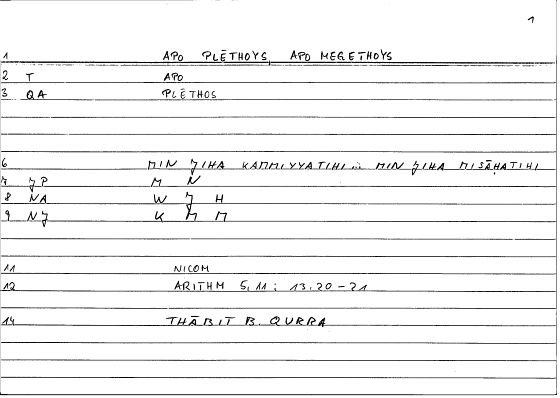 1
1 APO PLĒTHOYS, APO MEGETHOYS
2 T APO
3 QA PLĒTHOS
6 MIN ǦIHA KAMMIYYATIHI ... MIN ǦIHA MISĀḤATIHI
7 ǦP M N
8 NA W Ǧ H
9 NǦ K M M
11 NICOM
12 ARITHM 5,11 ; 13.20-21
14 THĀBIT B. QURRA